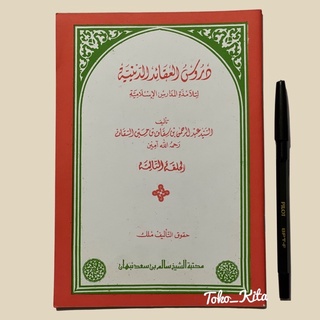 دروس العقائد الدينية
لتلامذة المدارس الإسلامية
تأليف
السيد عبد الرحمن بن سقاف بن حسين السقاف
رحمه الله آمين
الحلقة الثالثة
حقوق التأليف ملك
مكتبة الشيخ سالم بن سعد نبهان
Toko_Kita
PILOT